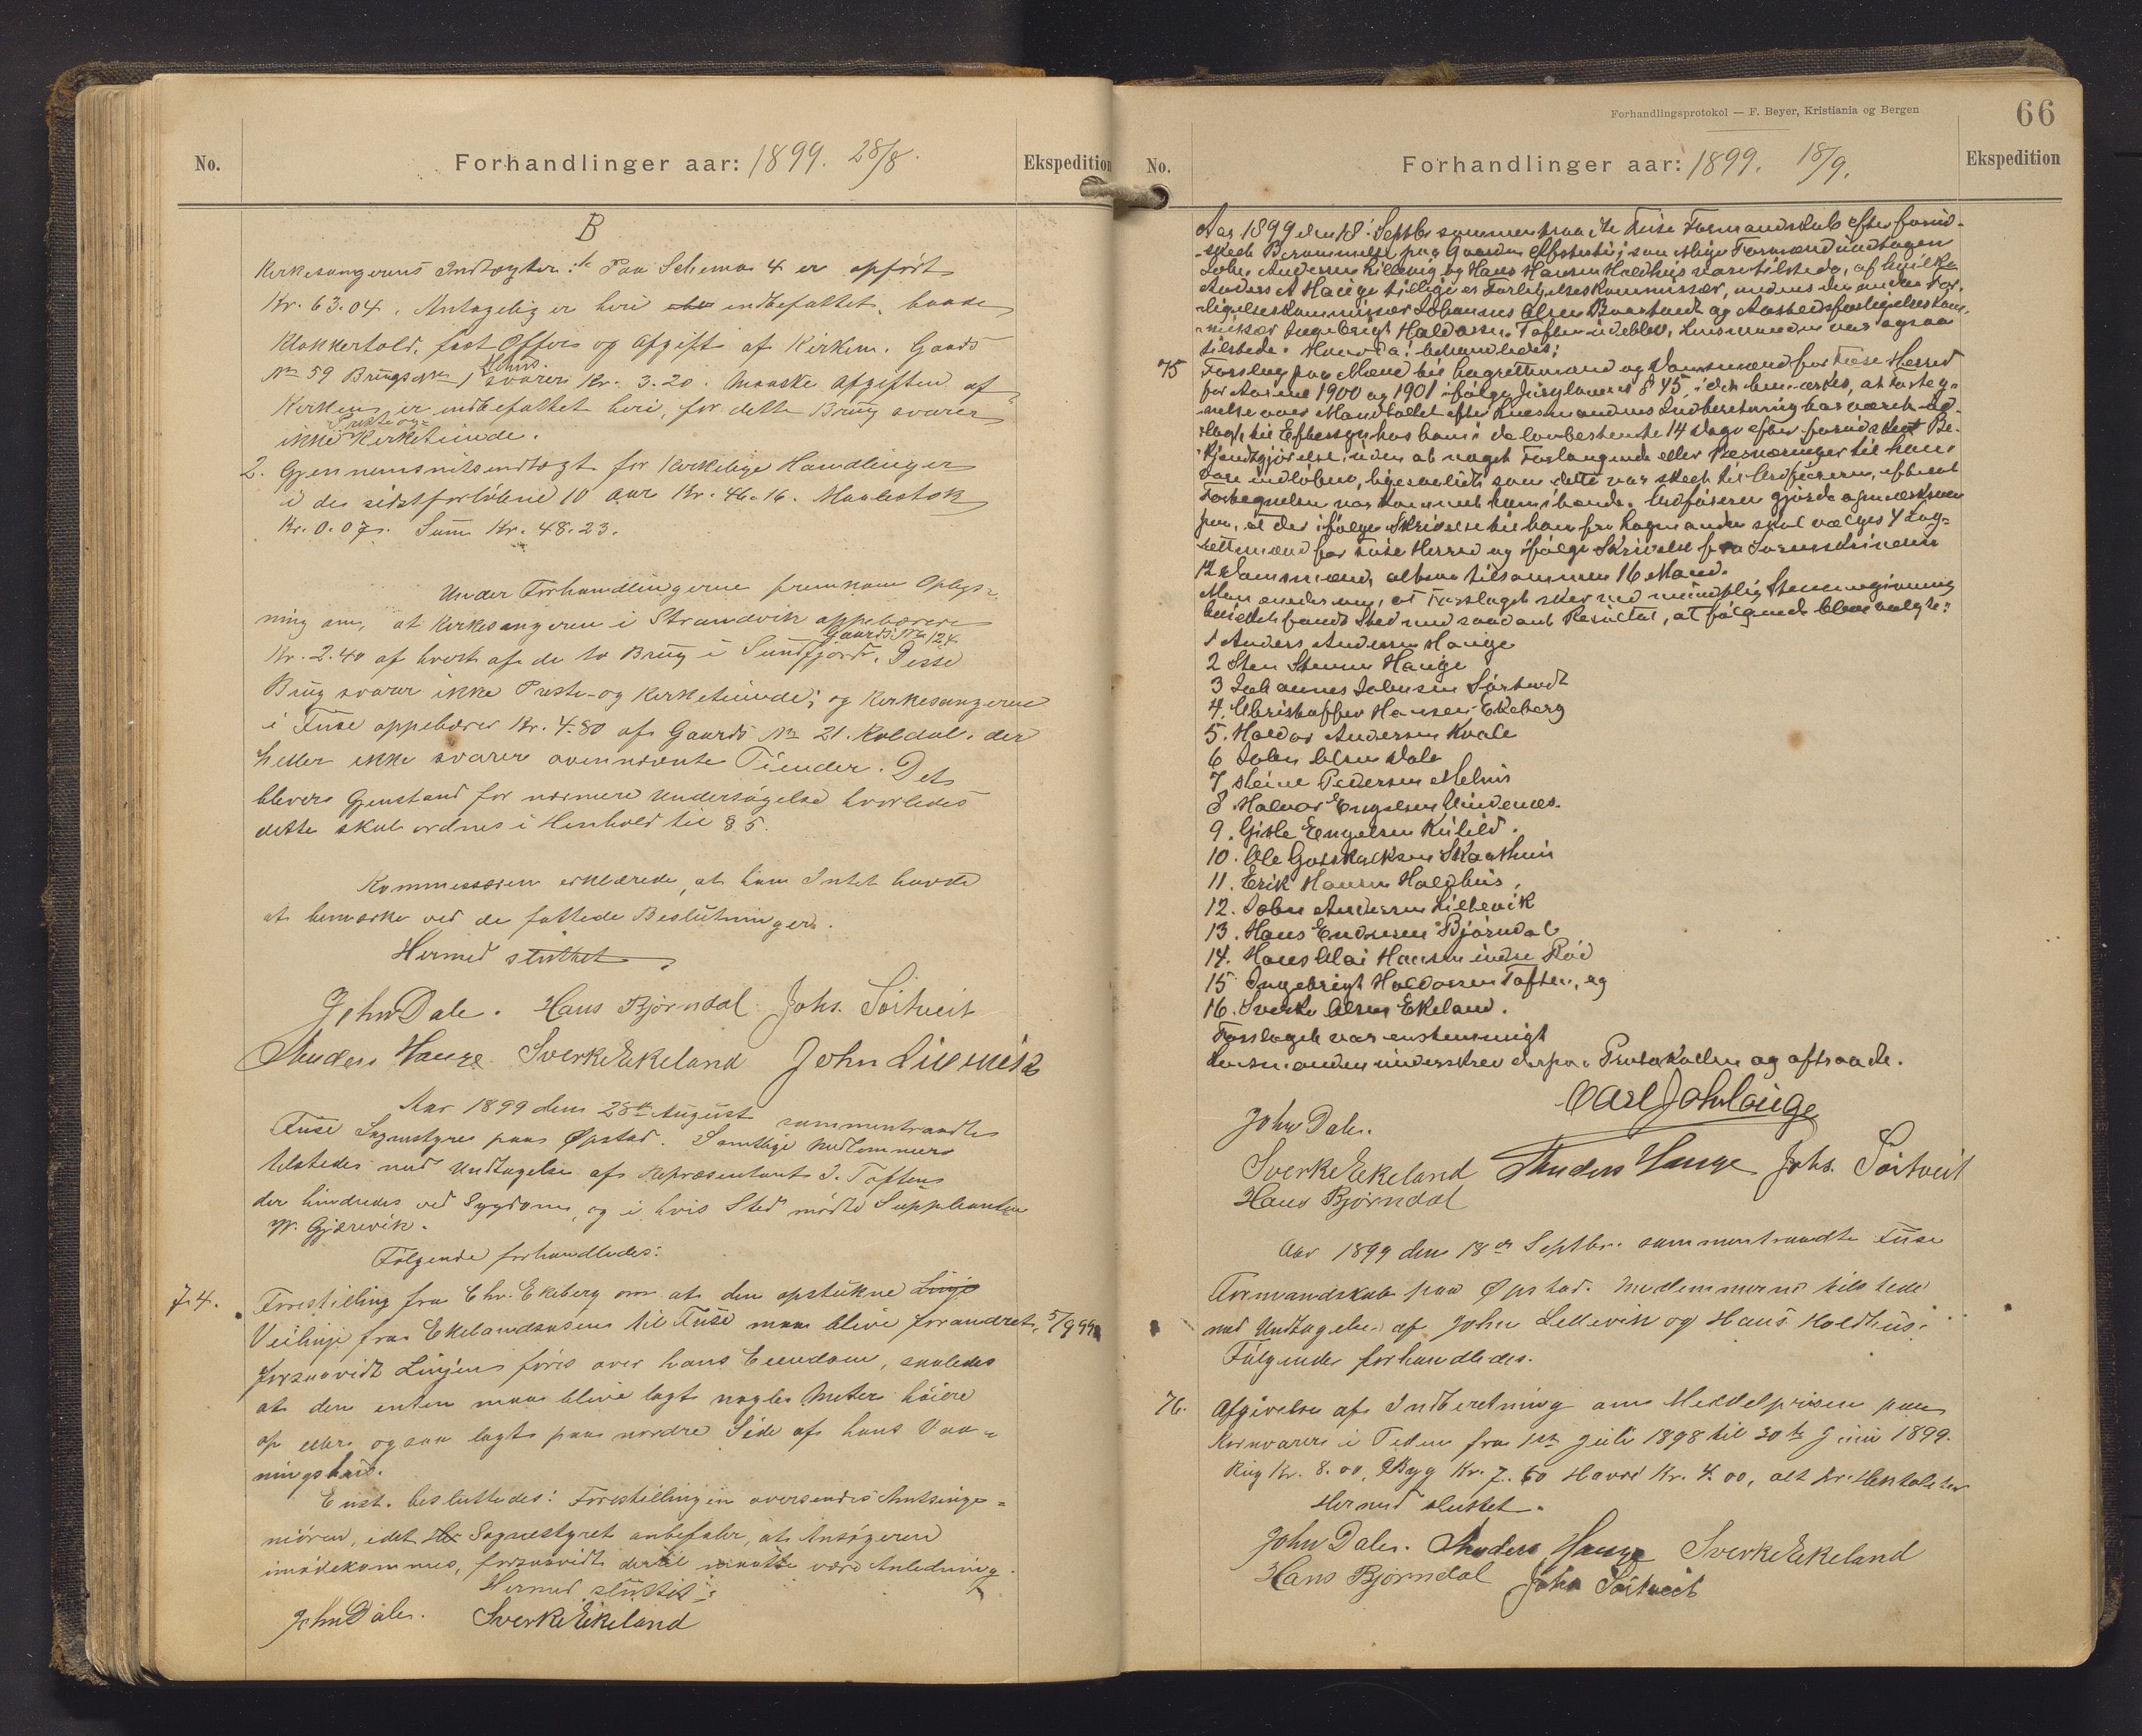 No.
Forhandlinger aar: 1899. 28/8.
Ekspedition
B
Kirkesangerens Indtægter: 1. Paa Schema 4 er opført
Kr. 63.04. Antagelig er heri indbefattet, baade
Klokkertold, fast Offer og Afgift af Kirken. Gaards
No 59 Brugs No 1 svarer Kr. 3.20. Maaske Afgiften af
Kirken er indbefattet heri, for dette Brug svarer
ikke Preste og Kirketiende.
2. Gjennemsnitsindtægt for kirkelige Handlinger
i de sidstforløbne 10 Aar Kr. 46.16. Maalestok
Kr. 0.07. Sum Kr. 48.23.
Under Forhandlingerne fremkom Oplys-
ning om, at Kirkesangeren i Strandvik oppebærer
Kr. 2.40 af hvert af de to Brug i Sundfjord, Gaards No 124. Disse
Brug svarer ikke Preste- og Kirketiende; og Kirkesangeren
i Fuse oppebærer Kr. 4.80 af Gaards No 21. Koldal, der
heller ikke svarer ovennævnte Tiender. Det
blever Gjenstand for nærmere Undersøgelse hvorledes
dette skal ordnes i Henhold til § 5.
Kommissæren erklærede, at han Intet havde
at bemærke ved de fattede Beslutninger.
Hermed sluttet
John Dale. Hans Bjørndal Johs. Söitveit
Anders Hauge Sverke Ekeland John Lillevik
Aar 1899 den 28de August sammentraadte
Fuse Sognestyre paa Øpstad. Samtlige Medlemmer
tilstede med Undtagelse af Repræsentant I. Toften
der hindredes ved Sygdom, og i hvis Sted mødte Suppleanten
W. Gjærevik.
Følgende forhandledes:
74. Forestilling fra Chr. Ekeberg om at den opstukne Linje
Veilinje fra Ekelandsosen til Fuse maa blive forandret, 5/9 99
forsaavidt Linjen føres over hans Eiendom, saaledes
at den enten maa blive lagt nogle Meter høiere
op eller ogsaa lagt paa nordre Side af hans Vaa-
ningshus.
Enst. besluttedes: Forestillingen oversendes Amtsinge-
niøren, idet Sognestyret anbefaler, at Ansøgeren
imødekommes, forsaavidt dertil maatte være Anledning.
Hermed sluttet:
John Dale. Sverke Ekeland
Forhandlingsprotokol — F. Beyer, Kristiania og Bergen
66
No.
Forhandlinger aar: 1899. 18/9.
Ekspedition
Aar 1899 den 18. Septbr sammentraadte Fuse Formandskab efter forud-
skeet Berammelse paa Gaarden samtlige Formænd undtagen
John Andersen Lillevig og Hans Hansen Holdhus vare tilstede, af hvilke
Anders A Hauge tillige er Forligelseskommissær, medens den anden For-
ligelseskommissær Johannes Olsen og Arbeidsforligelseskom-
missær Ingebrigt Haldorsen Toften udeblev, Lensmanden var ogsaa
tilstede. Hvorda behandledes:
75 Forslag paa Mænd til Lagrettemænd og Domsmænd for Fuse Herred
for Aarene 1900 og 1901 ifølge Jurylovens § 45, idet bemærkes, at Forteg-
nelse over Mandtallet efter Lensmandens Indberetning har været ud-
lagt til Eftersyn hos ham i de lovbestemte 14 Dage efter forudskeet Be-
kjendtgjørelse, uden at noget Forlangende eller Besværinger til ham
vare indløbne, ligesaalidt som dette var skeet til Ordføreren, efterat
Fortegnelsen var kommet ham ihænde. Ordføreren gjorde opmærksom
paa, at der ifølge Skrivelse til ham fra Lagmanden skal vælges 4 Lag-
rettemænd for Fuse Herred og ifølge Skrivelse fra Sorenskriveren
12 Domsmænd, altsaa tilsammen 16 Mænd.
Man enedes om, at Forslaget skeer ved mundtlig Stemmegivning
hvilket fandt Sted med saadant Resultat, at følgende bleve valgte:
1 Anders Andersen Hauge
2 Sten Stensen Hauge
3 Johannes Johnsen Sørtvedt
4. Christopher Hansen Ekeberg
5. Haldor Andersen Kvale
6 John Olsen Dale
7 Steine Pedersen Melhus
8. Halvor Engelsen Vindenes.
9. Gisle Engelsen Kileld.
10. Ole Gotskalksen Skaathun
11. Erik Hansen Holdhus,
12. John Andersen Lillevik
13. Hans Endresen Bjørndal
14. Hans Olai Hansen indre Rød
15 Ingebrigt Haldorsen Toften, og
16. Sverke Olsen Ekeland.
Forslaget var enstemmigt
Lensmanden underskrev derpaa Protokollen og aftraadte.
Carl Joh Lauge
John Dale.
Sverke Ekeland Anders Hauge Johs. Söitveit
Hans Bjørndal
Aar 1899 den 18de Septbr. sammentraadte Fuse
Formandskab paa Øpstad. Medlemmerne tilstede
med Undtagelse af John Lillevik og Hans Holdhus.
Følgende forhandledes.
76. Afgivelse af Indberetning om Middelprisen paa
Kornvarer i Tiden fra 1ste Juli 1898 til 30te Juni 1899.
Rug Kr. 8.00, Byg Kr. 7.60 Havre Kr. 4.00, alt pr. Hektoliter
Hermed sluttet.
John Dale. Anders Hauge Sverke Ekeland
Hans Bjørndal Johs Söitveit